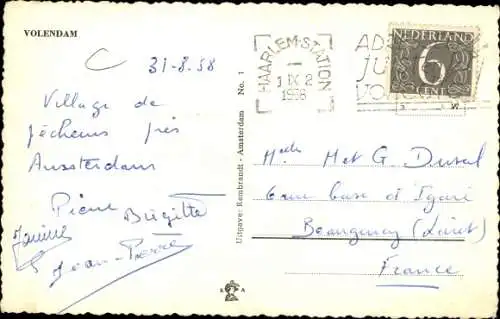 VOLENDAM
31-8.58
Village de
pêcheurs près
Amsterdam
Pierre Birgitte
Janine
Jean-Pierre
Uitgave: Rembrandt - Amsterdam No. 1
HAARLEM-STATION
1 IX 2
1958
NEDERLAND
6
CENT
Met G. Duval
France
Beaugency (Loiret)